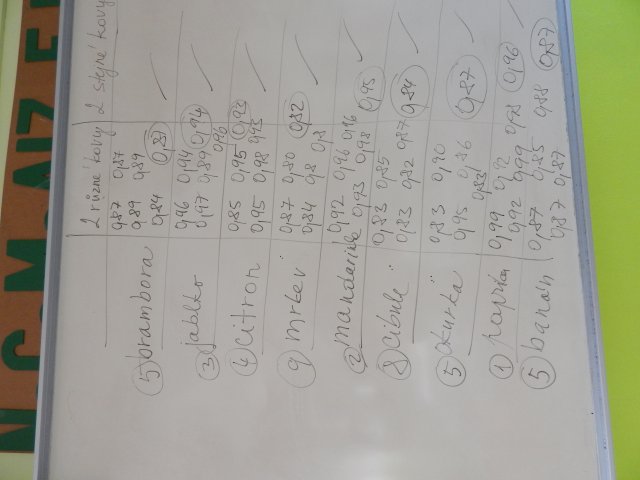 2 různé kovy 2 stejné kovy
5 brambora 0,87 0,87
0,89 0,89
0,84 0,87
3 jablko 0,96 0,94 0,94
0,97 0,89 0,96
4 citron 0,85 0,95
0,95 0,98 0,95
9 mrkev 0,87 0,80 0,82
0,84 0,8 0,8
2 mandarinka 0,92 0,96 0,96 0,95
0,93 0,98
8 cibule 0,83 0,85 0,84
0,83 0,82 0,87
5 okurka 0,83 0,90 0,87
0,95 0,86
0,83
1 paprika 0,99 0,92 0,96
0,92 0,99 0,98
5 banán 0,87 0,85 0,88 0,87
0,87 0,87